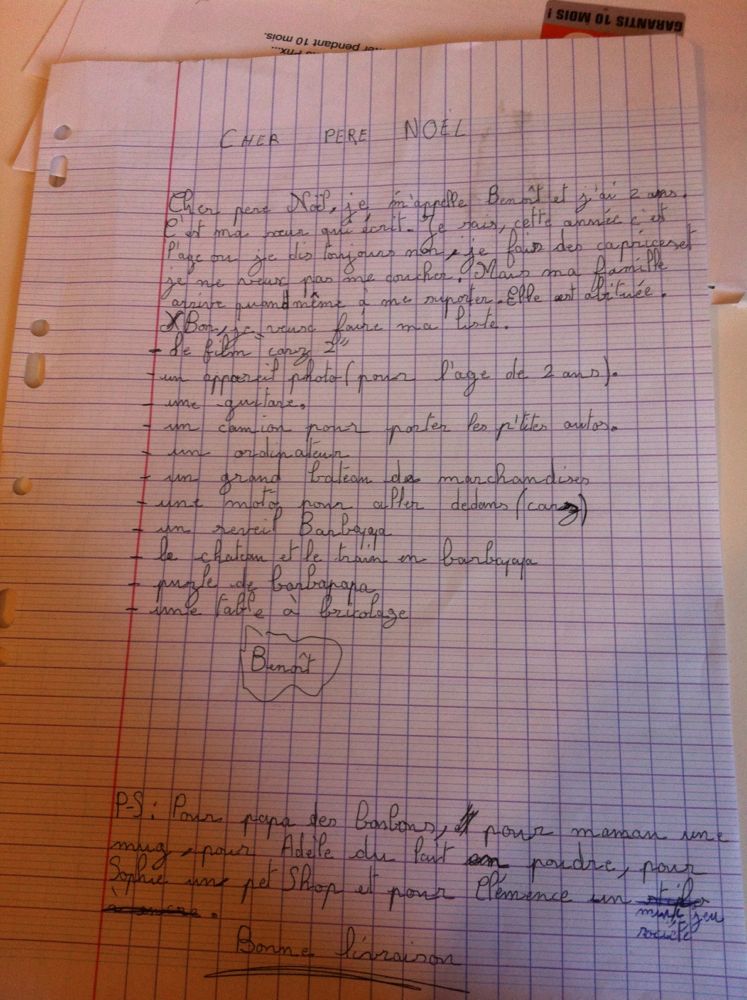 GARANTIS 10 MOIS !
Prix...
er pendant 10 mois.
CHER PERE NOEL
Cher pere Noël, je m'appelle Benoît et j'ai 2 ans.
C'est ma sœur qui écrit. Je sais, cette année c'est
l'age ou je dis toujours non, je fais des caprices et
je ne veux pas me coucher. Mais ma famille
arrive quand même à me suporter. Elle est abituée.
Bon, je veux faire ma liste.
- Le film carz 2"
- un appareil photo (pour l'age de 2 ans).
- une guitare.
- un camion pour porter les p'tites autos.
- un ordinateur
- un grand bateau de marchandises
- une moto pour aller dedans (carz)
- un reveil Barbapapa
- le chateau et le train en barbapapa
- puzle de barbapapa
- une table à bricolage
Benoît
P-S: Pour papa des bonbons, pour maman une
mug, pour Adèle du lait en poudre, pour
Sophie un pet Shop et pour Clémence un
jeu
société
à sucre.
Bonne livraison